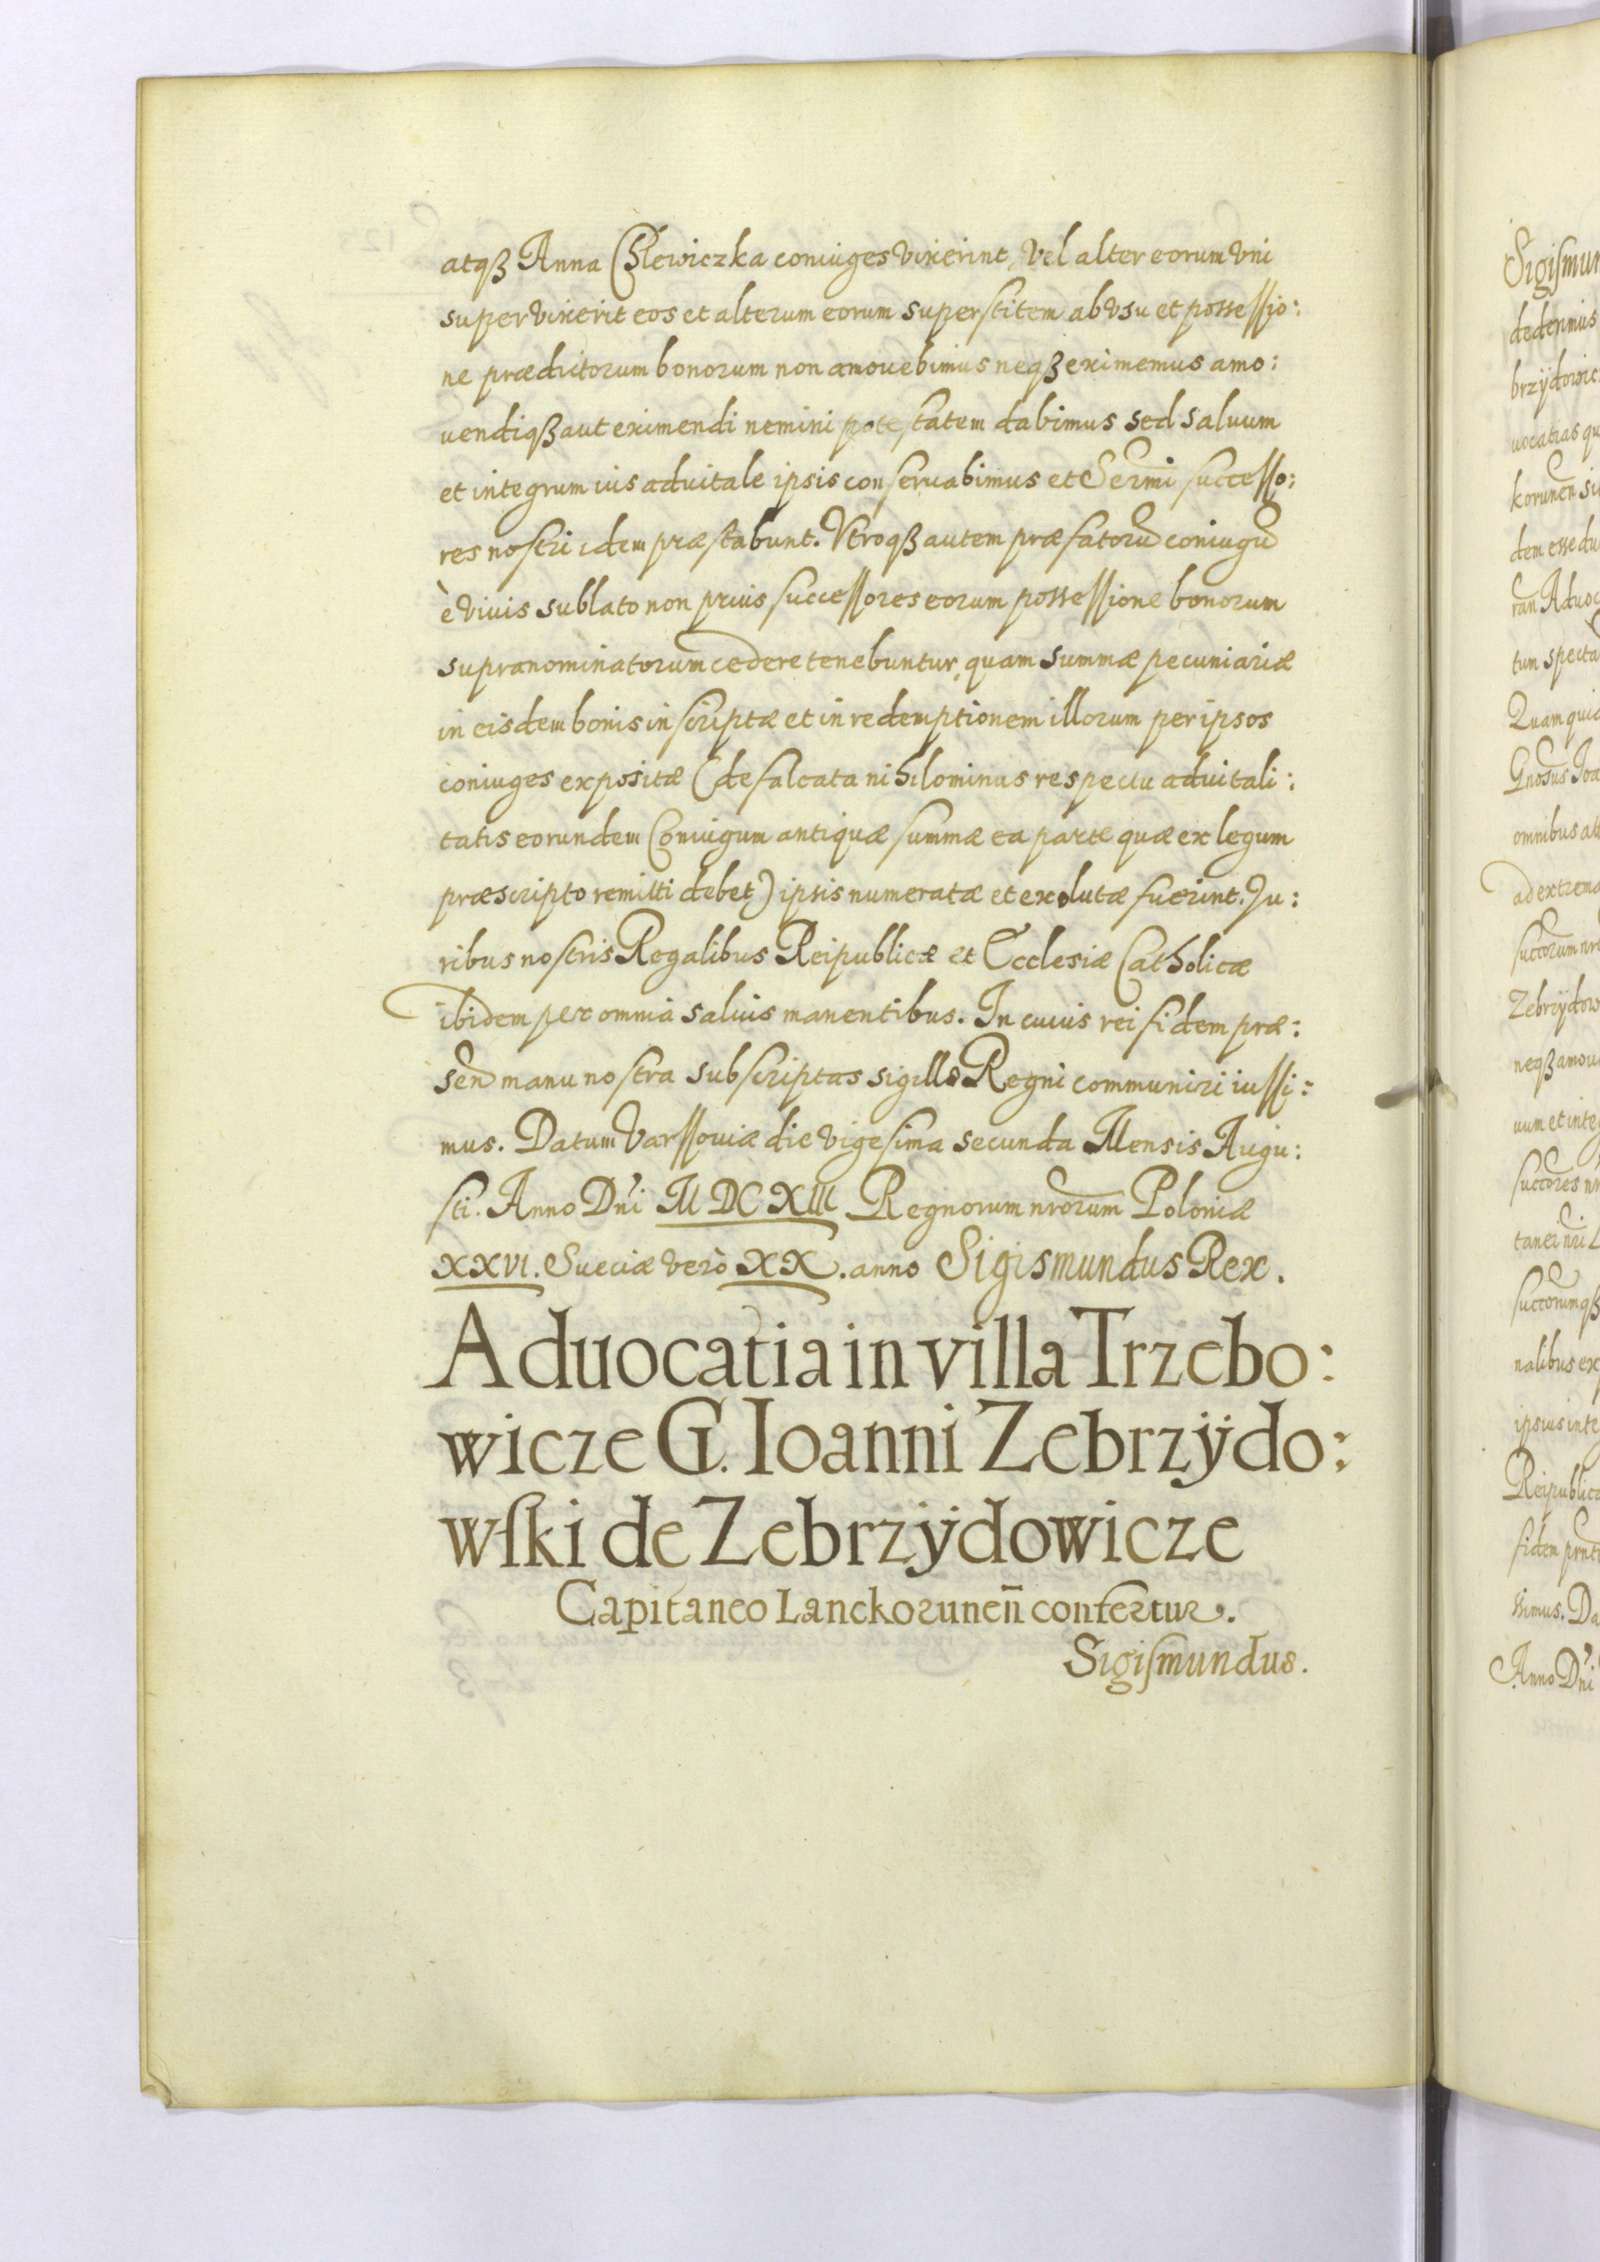 atqß Anna Chlewiczka coniuges vixerint, vel alter eorum vni
supervixerit eos et alterum eorum superstitem ab vsu et possessio:
ne prædictorum bonorum non amovebimus neqß eximemus amo:
uendiqß aut eximendi nemini potestatem dabimus sed saluum
et integrum ius aduitale ipsis conseruabimus et Sermi successo:
res nostri idem præstabunt. Vtroqß autem præfatoru coniugu
è viuis sublato non prius successores eorum possessione bonorum
supranominatorum cedere tenebuntur, quam summæ pecuniariæ
in eisdem bonis inscriptæ et in redemptionem illorum per ipsos
coniuges expositæ (defalcata nihilominus respectu aduitali:
tatis eorundem Coniugum antiquæ summæ ea parte quæ ex legum
præscripto remitti debet) ipsis numeratæ et exolutæ fuerint. Ju:
ribus nostris Regalibus Reipublicæ et Ecclesiæ Catholicæ
ibidem per omnia saluis manentibus. In cuius rei fidem præ:
sen manu nostra subscriptas sigillo Regni communiri iussi:
mus. Datum Varssouiæ die vigesima secunda Mensis Augu:
sti. Anno Dni MDCXIII Regnorum nrorum Poloniæ
XXVI. Sueciæ verò XX. anno Sigismundus Rex.
Aduocatia in villa Trzebo:
wicze G. Ioanni Zebrzÿdo:
wſki de Zebrzÿdowicze
Capitaneo Lanckorunen̄ confertur.
Sigiſmundus.
Sigiſmun
dederimus
brzÿdowic
uocatias qu
korunen si
dem esse du
ran Aduoc
tum specta
Quam quid
Gnosus Ioa
omnibus att
ad extrema
succorum nr
Zebrzÿdow
neqß amou
uum et integ
succores nr
tanei nri L
succorumqß
nalibus ex
ipsius inte
Reipublicæ
fidem prnt
ssimus. Da
Anno Dni